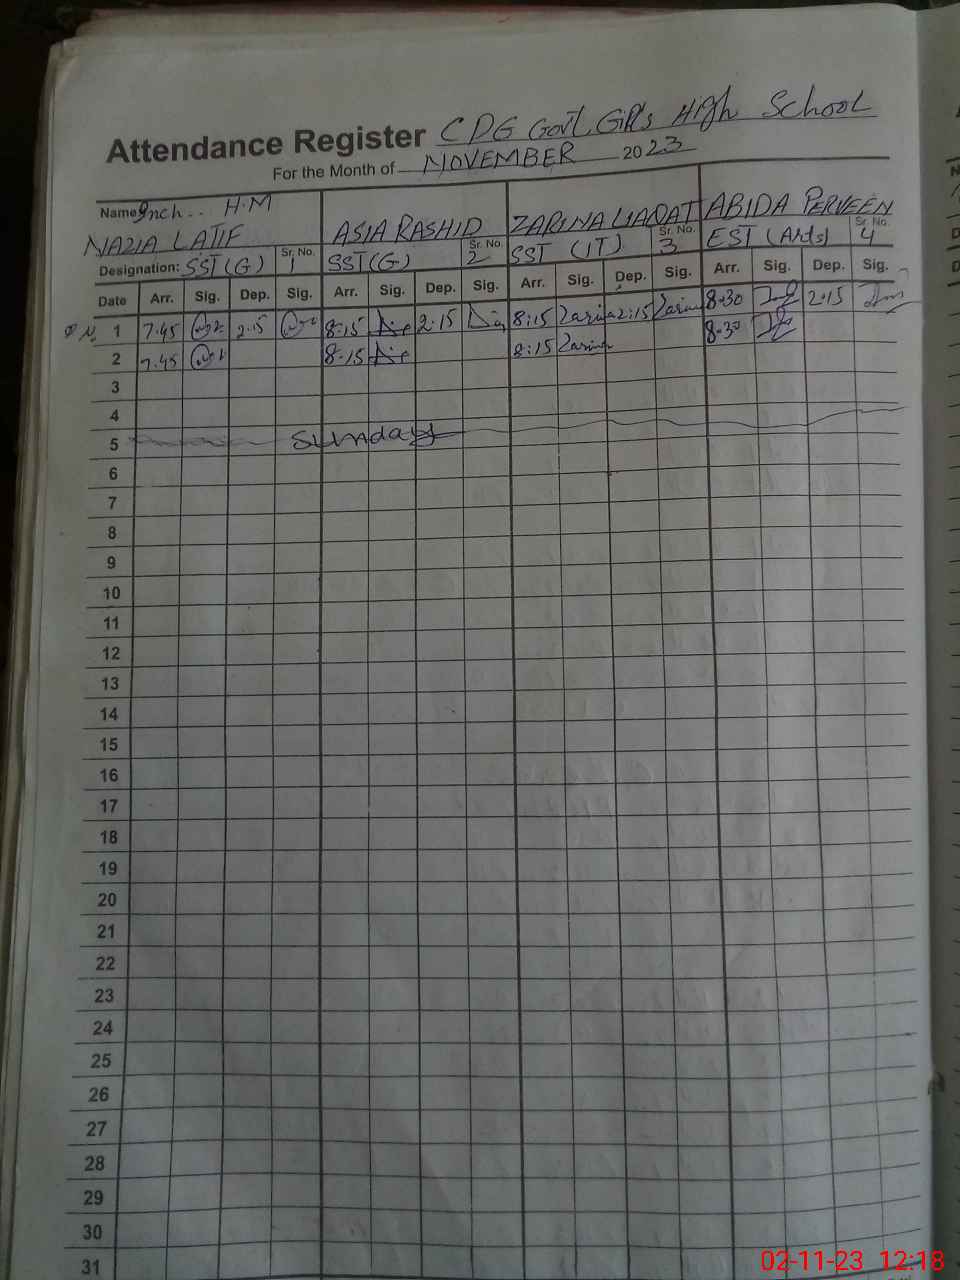 Attendance Register CDG Govt. Girls High School
For the Month of NOVEMBER 2023
Name Inch.. H.M
NAZIA LATIF ASIA RASHID ZARINA LIAQAT ABIDA PERVEEN
Designation: SST(G) Sr. No. 1 SST(G) Sr. No. 2 SST (IT) Sr. No. 3 EST (Arts) Sr. No. 4
Date Arr. Sig. Dep. Sig. Arr. Sig. Dep. Sig. Arr. Sig. Dep. Sig. Arr. Sig. Dep. Sig.
1 7.45 2.15 8:15 2.15 8:15 Zarina 2:15 Zarina 8-30 2:15
2 7.45 8.15 8:15 Zarina 8-30
3
4
5 Sunday
6
7
8
9
10
11
12
13
14
15
16
17
18
19
20
21
22
23
24
25
26
27
28
29
30
31
02-11-23 12:18